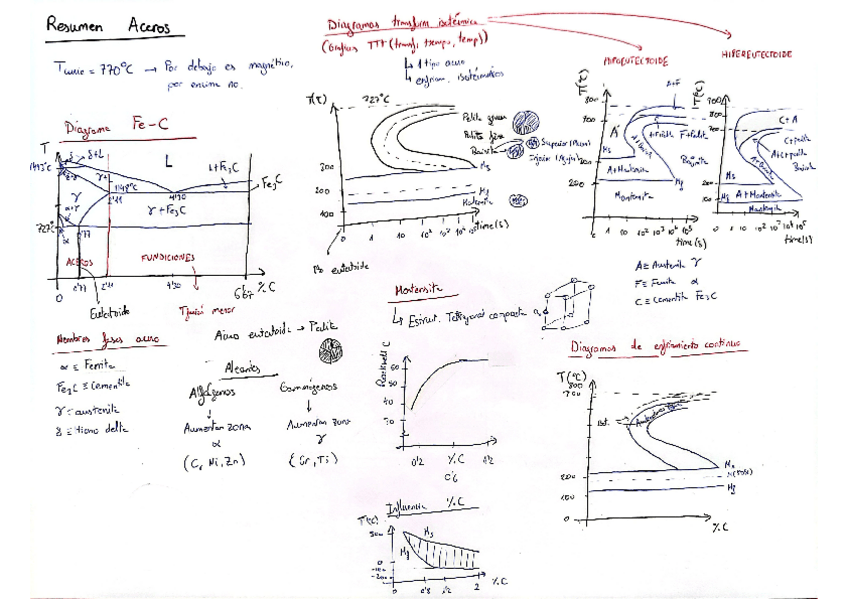 Resumen Aceros
Tcurie = 770°C → Por debajo es magnético,
por encima no.
Diagrama Fe-C
T
1493°C
δ+L
L
γ+L
L+Fe3C
Fe3C
1148°C
2'11
4'30
γ
α+γ
γ+Fe3C
727°C
α
0'77
ACEROS
FUNDICIONES
0
0'77
2'11
4'30
6'67
%C
Eutectoide
Nombres fases acero
α ≡ Ferrita
Fe3C ≡ Cementita
γ = austenita
δ ≡ Hierro delta
Acero eutectoide → Perlita
Aleantes
Alfágenos
Aumentan zona
α
(Cr, Ni, Zn)
Gammágenos
Aumentan zona
γ
(Cr, Ti)
Diagramas transform. isotérmica
(Gráficos TTT (transf, tiempo, temp))
↳ 1 tipo acero
↳ enfriam. isotérmicos
T(°C)
727°C
Perlita gruesa
Perlita fina
Bainita
Superior (Plumas)
Inferior (Agujas)
Ms
Mf
Martensita
300
200
100
0
1
10
10²
10³
10⁴
10⁵
time(s)
eutectoide
HIPOEUTECTOIDE
T(°C)
800
700
A+F
A
F+Perlita
Bainita
Ms
A+Martensita
Martensita
Mf
200
1
10
10²
10³
10⁴
10⁵
time(s)
HIPEREUTECTOIDE
T(°C)
C+A
C+perlita
A+C+perlita
Bainita
Ms
A+Martensita
Mf
Martensita
200
100
1
10
10²
10³
10⁴
10⁵
time(s)
A ≡ Austenita γ
F ≡ Ferrita α
C ≡ Cementita Fe3C
Martensita
↳ Estruct. Tetragonal compacta
Rockwell C
60
50
40
0'2
%C
0'6
1'2
Influencia %C
T(°C)
500
Ms
Mf
0
-100
-200
0
0'8
1'2
2
%C
Diagramas de enfriamiento continuo
T(°C)
800
700
Ms
Mf
200
100
0
%C